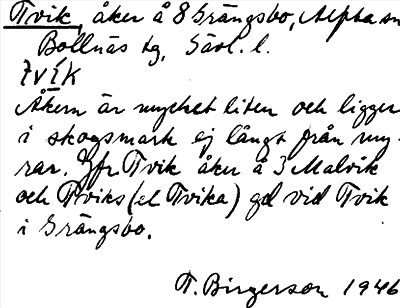 Tvik, åker å 8 Grängsbo, Alfta sn
Bollnäs tg, Gävl. l.
Åkern är mycket liten och ligger
i skogsmark ej långt från my-
rar. Jfr Tvik åker å 3 Malvik
och Tviks (el Tvika) gd vid Tvik
i Grängsbo.
T. Birgerson 1946